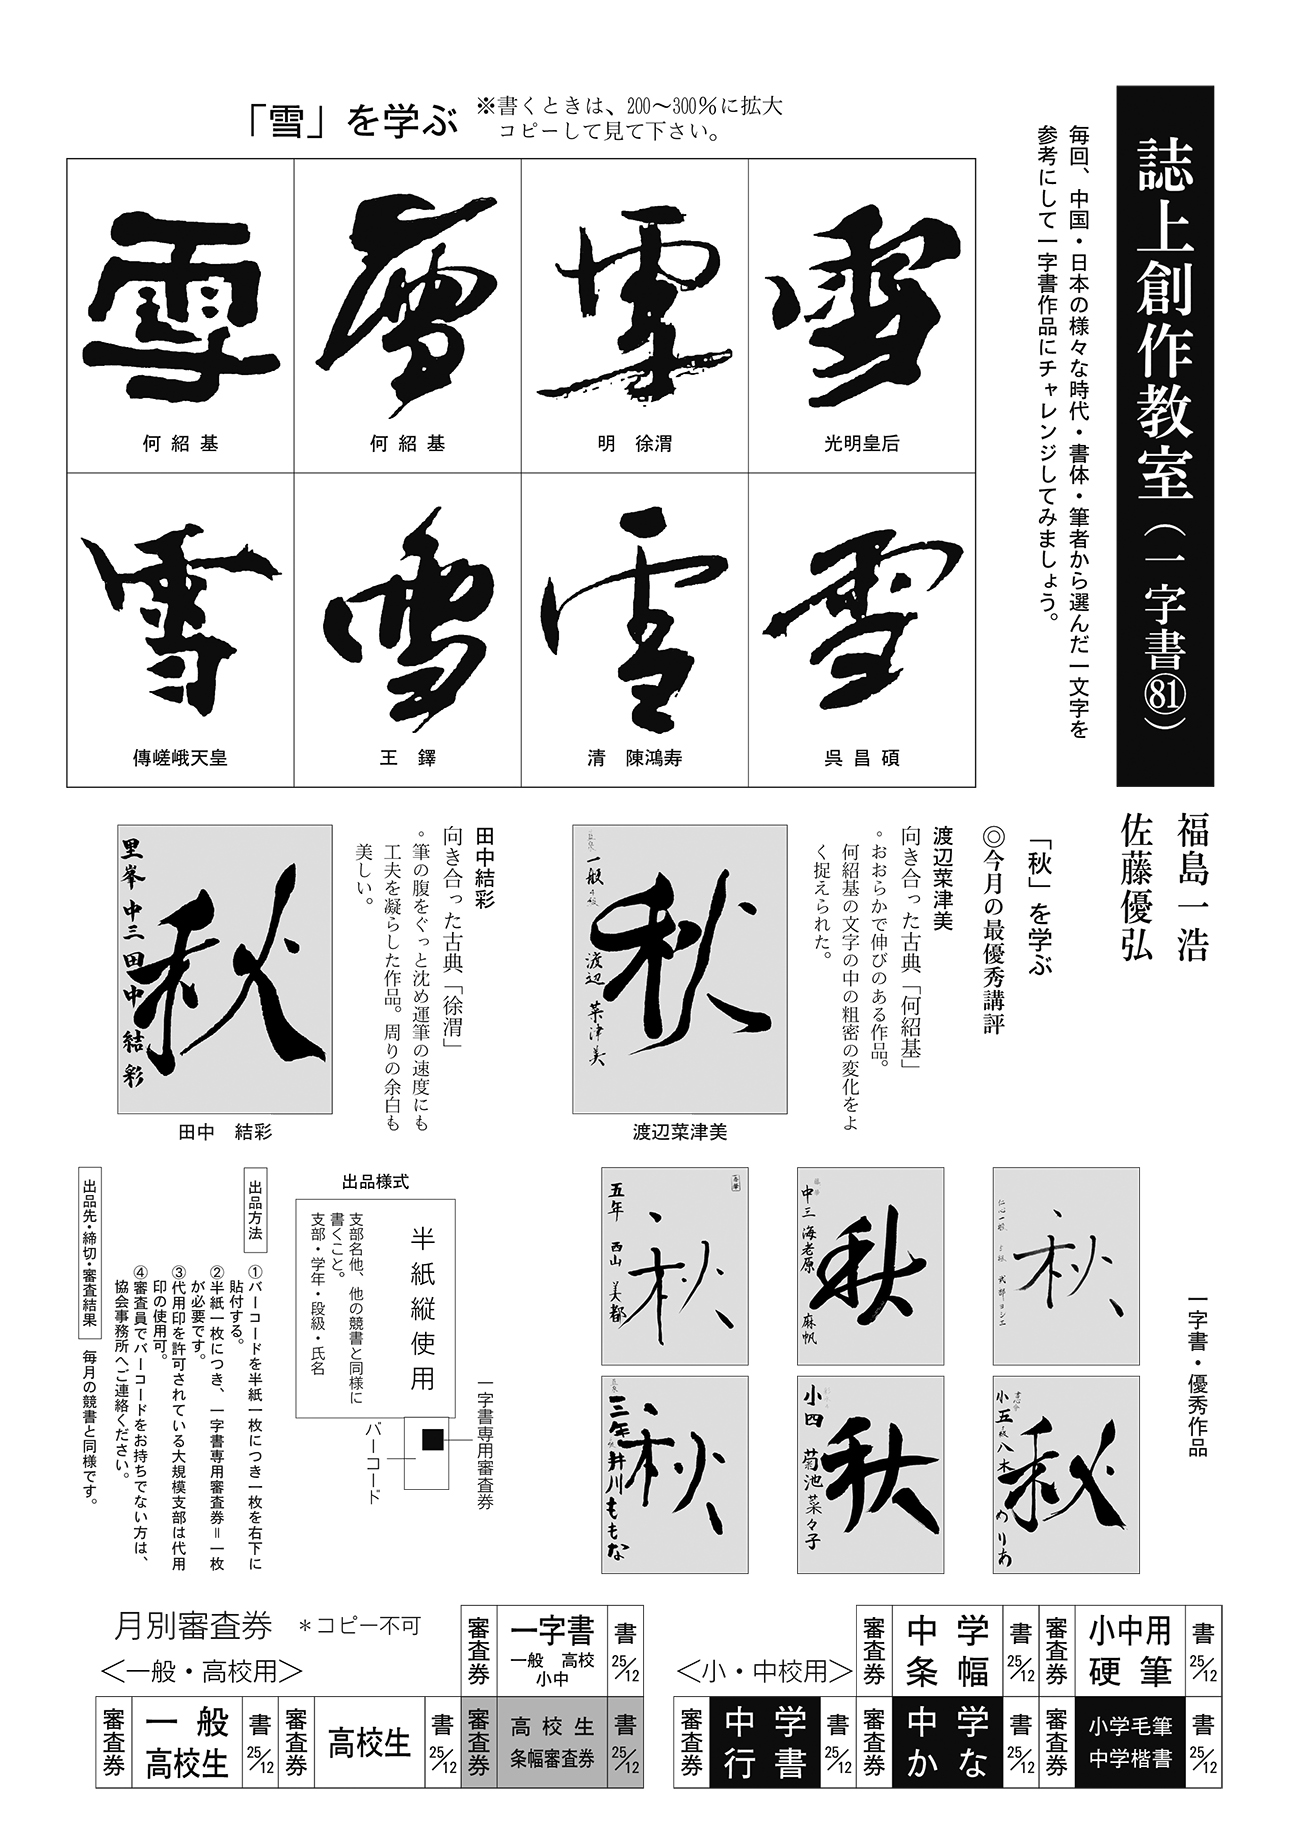 誌上創作教室（一字書㉛）
福島一浩
佐藤優弘
毎回、中国・日本の様々な時代・書体・筆者から選んだ一文字を
参考にして一字書作品にチャレンジしてみましょう。
「雪」を学ぶ
※書くときは、200～300％に拡大
コピーして見て下さい。
雪
光明皇后
雪
明　徐渭
雪
何紹基
雪
何紹基
雪
呉昌碩
雪
清　陳鴻寿
雪
王　鐸
雪
傳嵯峨天皇
「秋」を学ぶ
◎今月の最優秀講評
渡辺菜津美
向き合った古典「何紹基」
。おおらかで伸びのある作品。
何紹基の文字の中の粗密の変化をよ
く捉えられた。
秋
一般
渡辺　菜津美
渡辺菜津美
田中結彩
向き合った古典「徐渭」
。筆の腹をぐっと沈め運筆の速度にも
工夫を凝らした作品。周りの余白も
美しい。
秋
里峯　中三　田中　結彩
田中　結彩
一字書・優秀作品
秋
秋
中三　海老原　麻帆
秋
五年　西山　美都
秋
小五　八木　のりあ
秋
小四　菊池菜々子
秋
三年　井川ももな
出品様式
半紙縦使用
支部名他、他の競書と同様に
書くこと。
支部・学年・段級・氏名
一字書専用審査券
バーコード
出品方法
①バーコードを半紙一枚につき一枚を右下に
貼付する。
②半紙一枚につき、一字書専用審査券＝一枚
が必要です。
③代用印を許可されている大規模支部は代用
印の使用可。
④審査員でバーコードをお持ちでない方は、
協会事務所へご連絡ください。
出品先・締切・審査結果　毎月の競書と同様です。
月別審査券　＊コピー不可
＜一般・高校用＞
審査券　一字書　一般　高校　小中　書25/12
審査券　一般　高校生　書25/12
審査券　高校生　書25/12
審査券　高校生　条幅審査券　書25/12
＜小・中校用＞
審査券　中学　条幅　書25/12
審査券　小中用　硬筆　書25/12
審査券　中学　行書　書25/12
審査券　中学　かな　書25/12
審査券　小学毛筆　中学楷書　書25/12